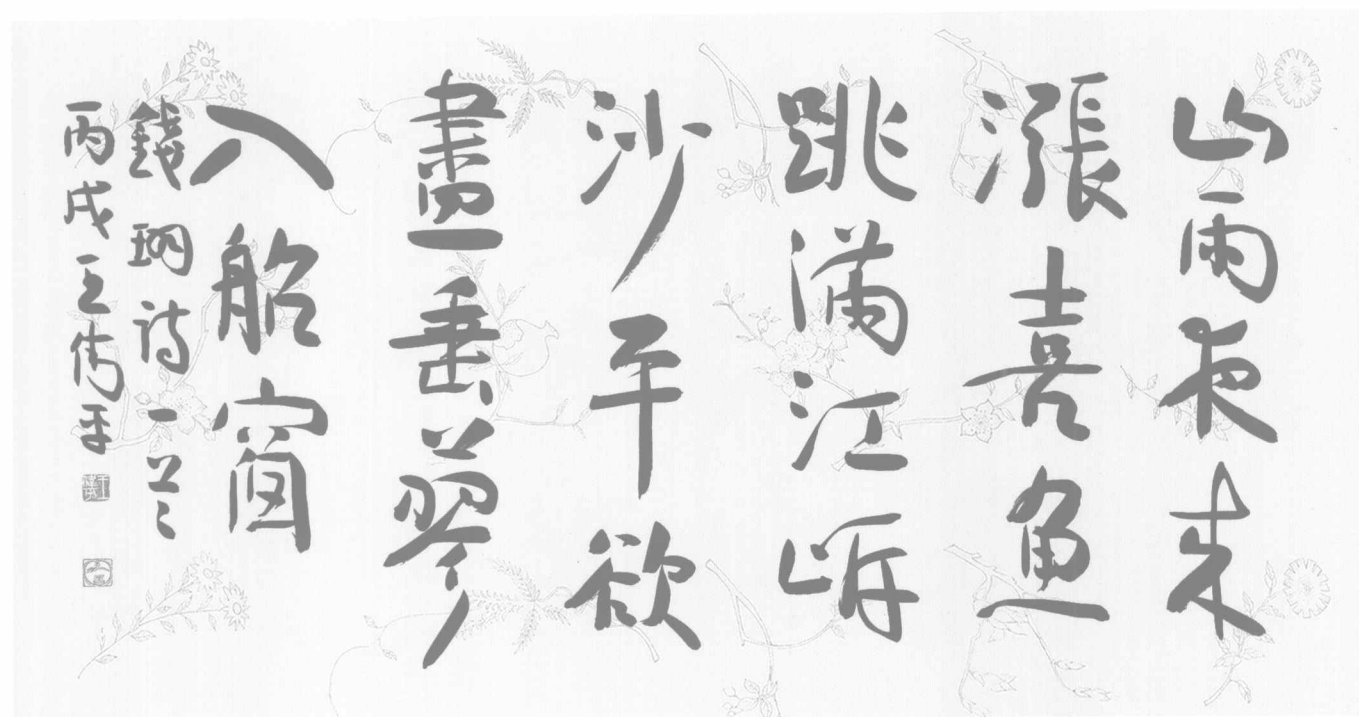 山雨夜来
漲喜魚
跳满江岸
沙平欲
盡垂蓼
入船窗
錢珝詩一首
丙戌王偉平